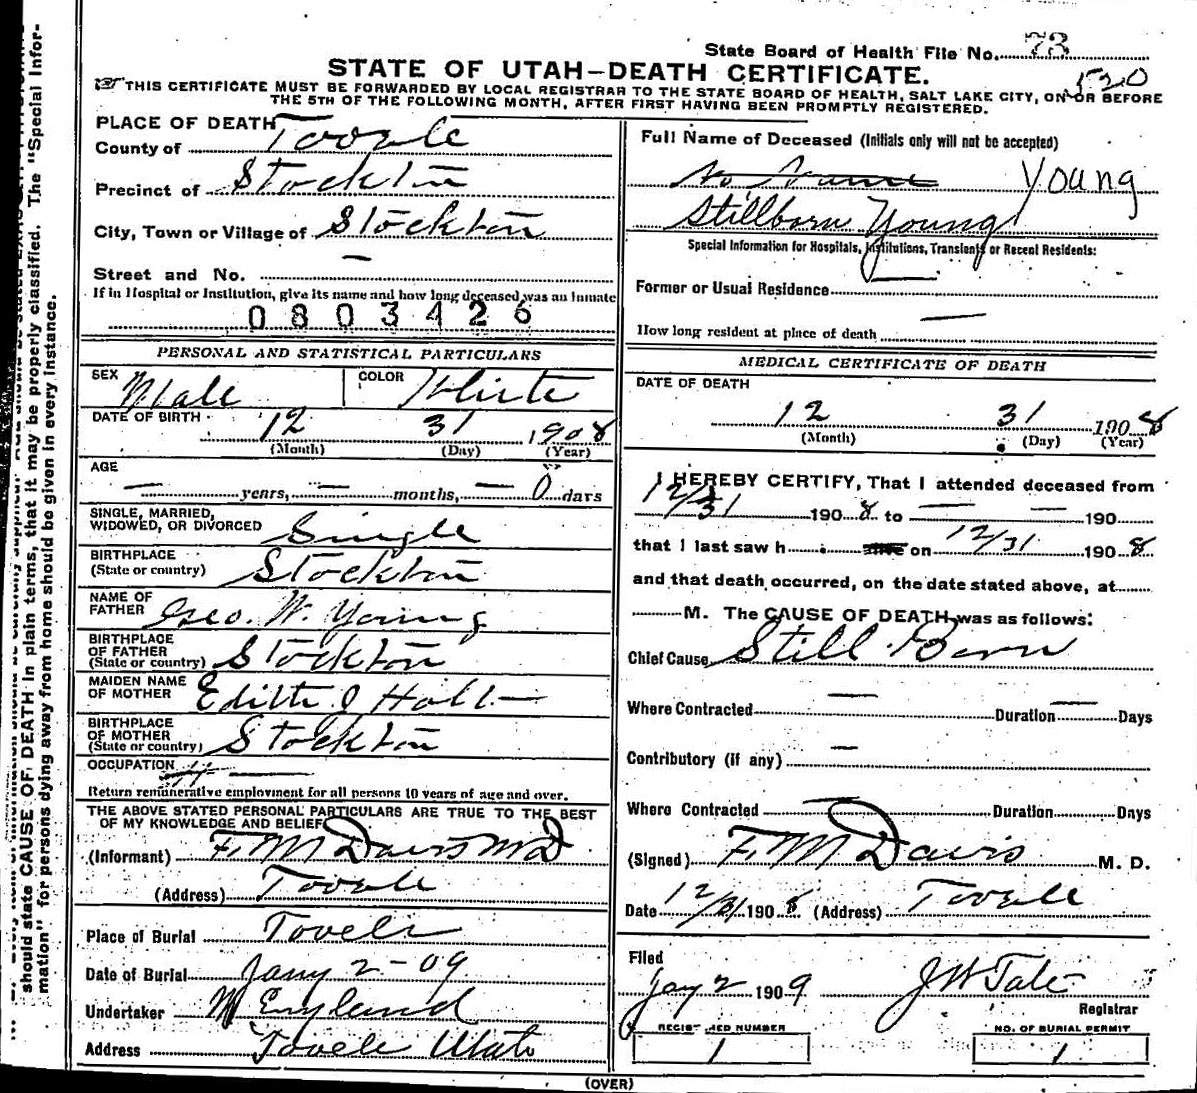 State Board of Health File No. 73
STATE OF UTAH—DEATH CERTIFICATE.
520
THIS CERTIFICATE MUST BE FORWARDED BY LOCAL REGISTRAR TO THE STATE BOARD OF HEALTH, SALT LAKE CITY, ON OR BEFORE
THE 5TH OF THE FOLLOWING MONTH, AFTER FIRST HAVING BEEN PROMPTLY REGISTERED.
PLACE OF DEATH
County of Tooele
Precinct of Stockton
City, Town or Village of Stockton
Street and No. —
If in Hospital or Institution, give its name and how long deceased was an Inmate
0803426
PERSONAL AND STATISTICAL PARTICULARS
SEX Male COLOR White
DATE OF BIRTH 12 31 1908
(Month) (Day) (Year)
AGE
— years, — months, — 0 days
SINGLE, MARRIED,
WIDOWED, OR DIVORCED Single
BIRTHPLACE
(State or country) Stockton
NAME OF
FATHER Geo. W. Young
BIRTHPLACE
OF FATHER
(State or country) Stockton
MAIDEN NAME
OF MOTHER Edith J Holt
BIRTHPLACE
OF MOTHER
(State or country) Stockton
OCCUPATION —
Return remunerative employment for all persons 10 years of age and over.
THE ABOVE STATED PERSONAL PARTICULARS ARE TRUE TO THE BEST
OF MY KNOWLEDGE AND BELIEF
(Informant) F. M Davis MD
(Address) Tooele
Place of Burial Tooele
Date of Burial Jany 2 - 09
Undertaker W England
Address Tooele Utah
Full Name of Deceased (Initials only will not be accepted)
No Name Young
Stillborn Young
Special Information for Hospitals, Institutions, Transients or Recent Residents:
Former or Usual Residence —
How long resident at place of death —
MEDICAL CERTIFICATE OF DEATH
DATE OF DEATH
12 31 1908
(Month) (Day) (Year)
I HEREBY CERTIFY, That I attended deceased from
12/31 1908 to — — 190
that I last saw h alive on 12/31 1908
and that death occurred, on the date stated above, at
M. The CAUSE OF DEATH was as follows:
Chief Cause Still Born
Where Contracted — Duration — Days
Contributory (if any) —
Where Contracted — Duration Days
(Signed) F. M Davis M. D.
Date 12/31 1908 (Address) Tooele
Filed
Jay 2 1909 J W Tate
Registrar
REGISTERED NUMBER
1
NO. OF BURIAL PERMIT
1
(OVER)
should state CAUSE OF DEATH in plain terms, that it may be properly classified. The "Special Infor-
mation" for persons dying away from home should be given in every instance.